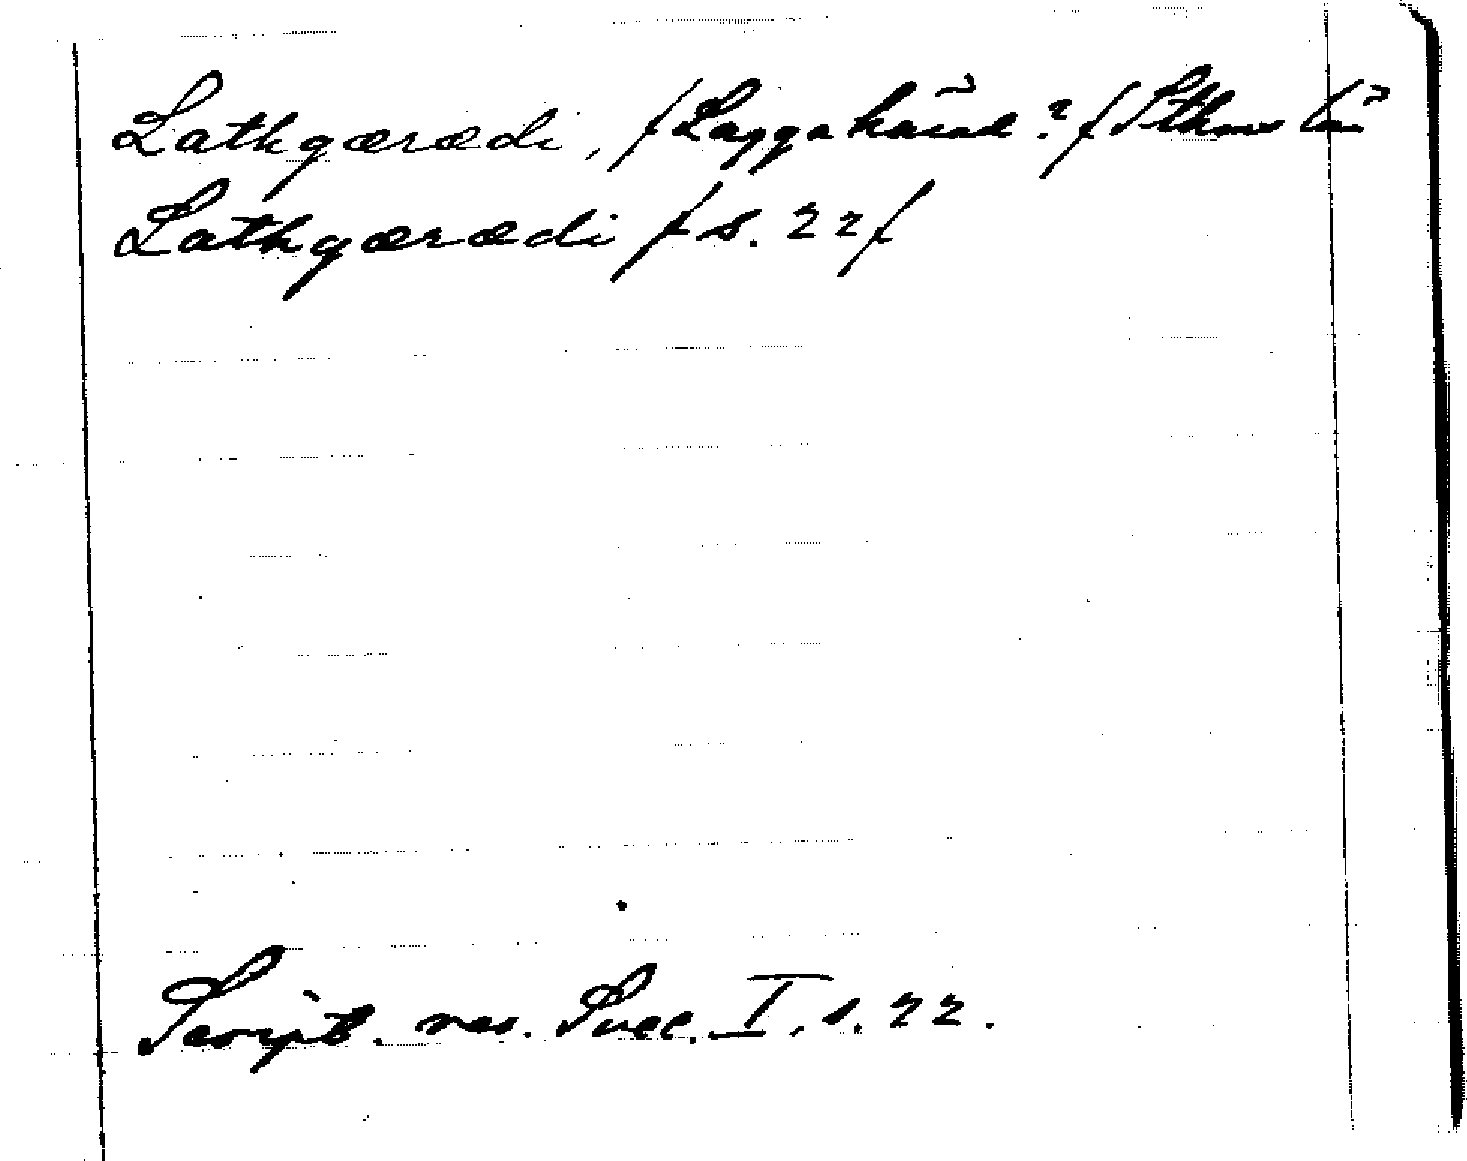 Lathgæræði, /Laggahärad?/ Sthms län
Lathgæræði / s. 22/
Script. rer. Suec. I, s. 22.